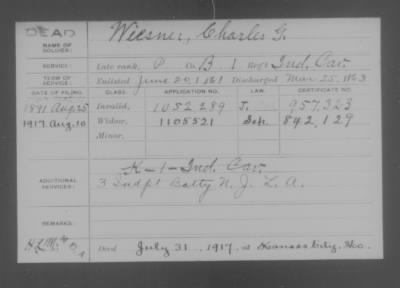 DEAD
NAME OF SOLDIER: Wiesner, Charles G.
SERVICE: Late rank, P Co. B. 1 Reg't Ind. Cav.
TERM OF SERVICE: Enlisted June 20, 1861 Discharged Mar 25, 1863
DATE OF FILING. CLASS. APPLICATION NO. LAW. CERTIFICATE NO.
1891 Aug. 25 Invalid, 1052289 J. 957,323
1917. Aug. 10 Widow, 1105521 842,129
Minor,
ADDITIONAL SERVICES: K-1-Ind. Cav.
3 Indpt Batty N. J. L. A.
REMARKS:
Died July 31, 1917, at Kansas City, Mo.